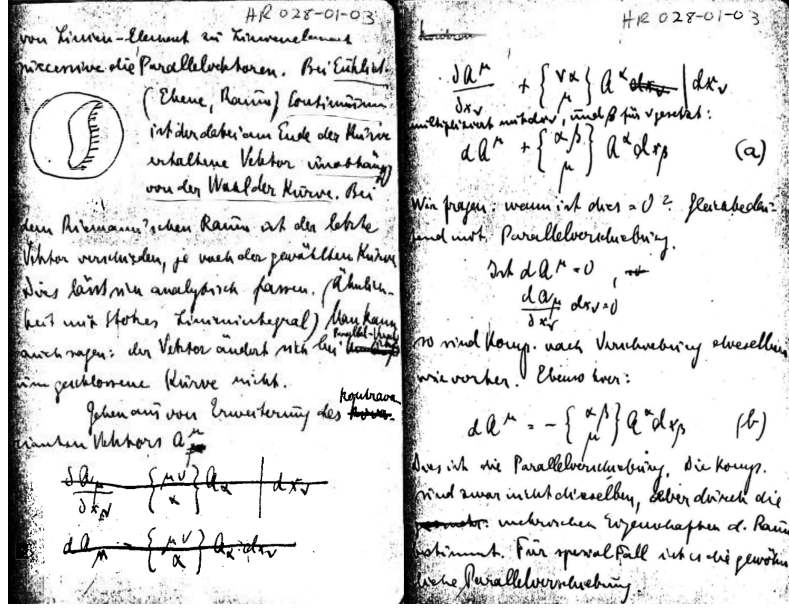 HR 028-01-03
von Linien-Element zu Linienelement
successive die Parallelvektoren. Bei Euklid.
(Ebene, Raum) Continuum
ist der dabei am Ende der Kurve
erhaltene Vektor unabhängig
von der Wahl der Kurve. Bei
dem Riemann'schen Raum ist der letzte
Vektor verschieden, je nach der gewählten Kurve
Dies lässt sich analytisch fassen. (Ähnlich-
keit mit Stokes Linienintegral) Man kann
auch sagen: der Vektor ändert sich bei Parallel-
um geschlossene Kurve nicht.
Gehen aus von Erweiterung des kontrava-
rianten Vektors A^μ
∂A_μ/∂x_ν {μν α} A_α | dx_ν
dA_μ - {μν α} A_α dx_ν
HR 028-01-03
∂A^μ/∂x_ν + {να μ} A^α dx_ν | dx_ν
multipliziert mit dxν, und β für ν gesetzt:
dA^μ + {αβ μ} A^α dx_β (a)
Wir fragen: wann ist dies = 0? Gleichbedeu-
tend mit Parallelverschiebung.
Ist dA^μ = 0
∂a_μ/∂x_ν dx_ν = 0
so sind Komp. nach Verschiebung dieselben
wie vorher. Ebenso hier:
dA^μ = - {αβ μ} A^α dx_β (b)
Dies ist die Parallelverschiebung. Die Komp.
sind zwar nicht dieselben, aber durch die
metrischen Eigenschaften d. Raum
bestimmt. Für spezial Fall ist es die gewöhn-
liche Parallelverschiebung